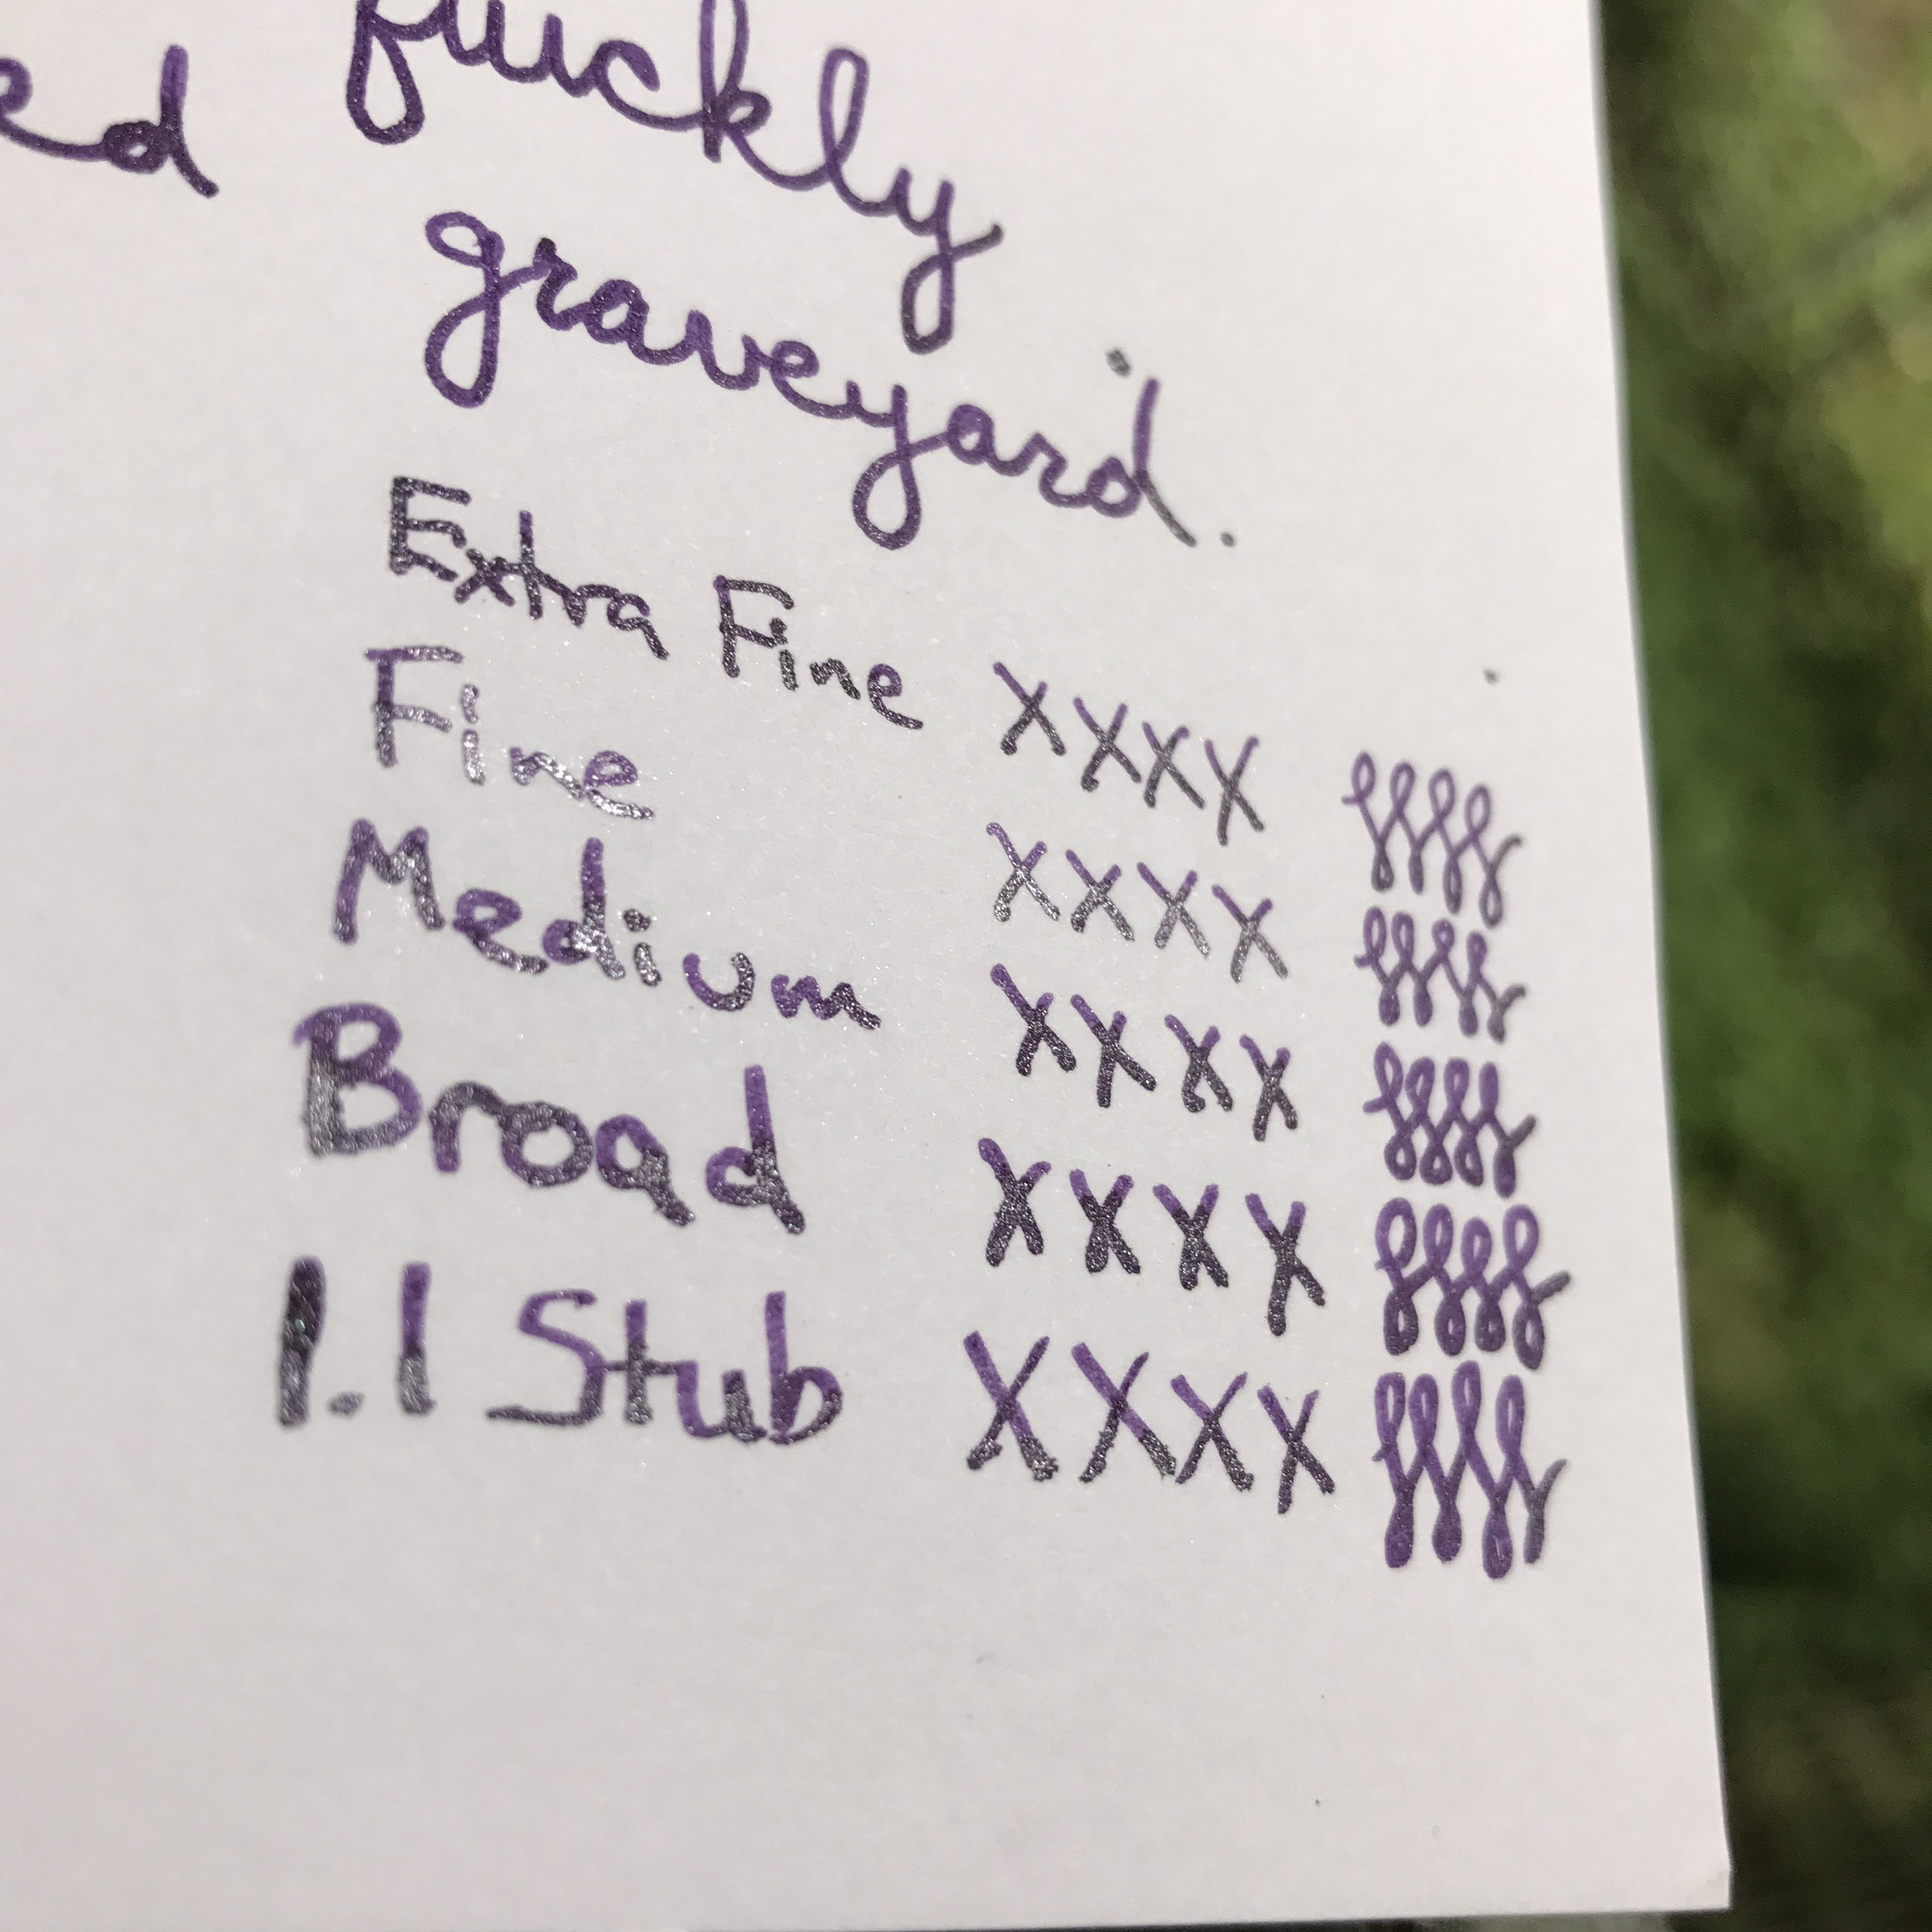 quickly
ed graveyard.
Extra Fine xxxx
Fine xxxx
Medium xxxx
Broad xxxx
1.1 Stub xxxx